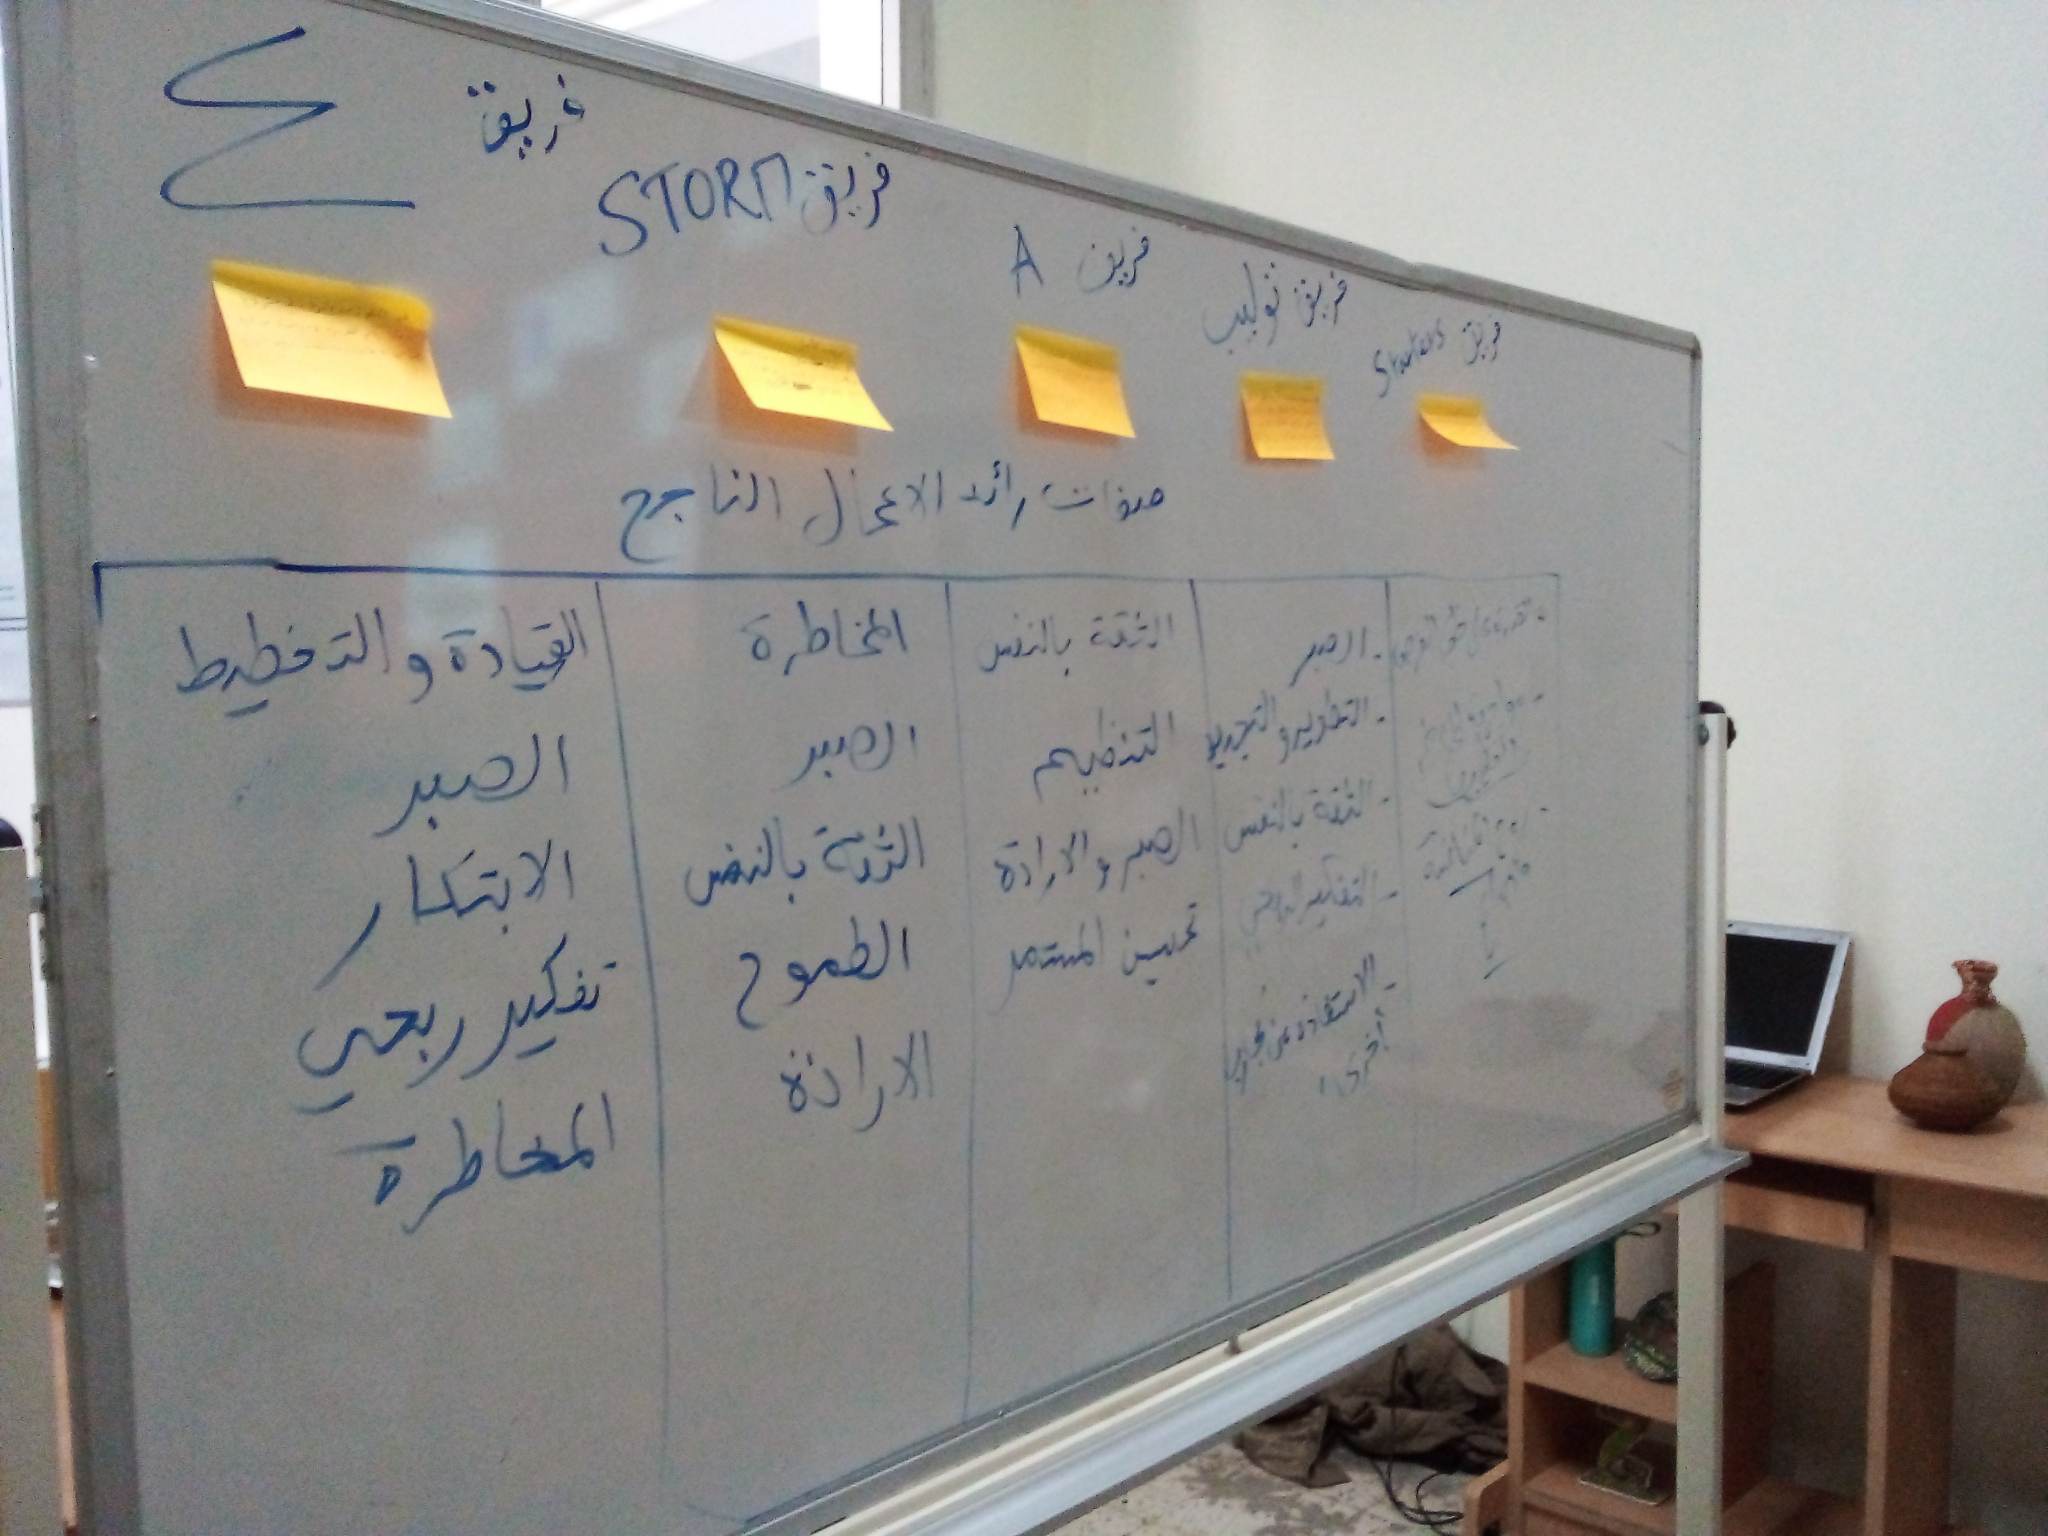 فريق Starters
فريق توليب
فريق A
فريق STORM
فريق
صفات رائد الاعمال الناجح
- الصبر
- التطوير و التجريب
- الثقة بالنفس
- التفكير الربحي
- الاستفادة من تجارب
أخرى
الثقة بالنفس
التنظيم
الصبر و الارادة
تحسين المستمر
المخاطرة
الصبر
الثقة بالنفس
الطموح
الارادة
القيادة و التخطيط
الصبر
الابتكار
تفكير ربحي
المخاطرة